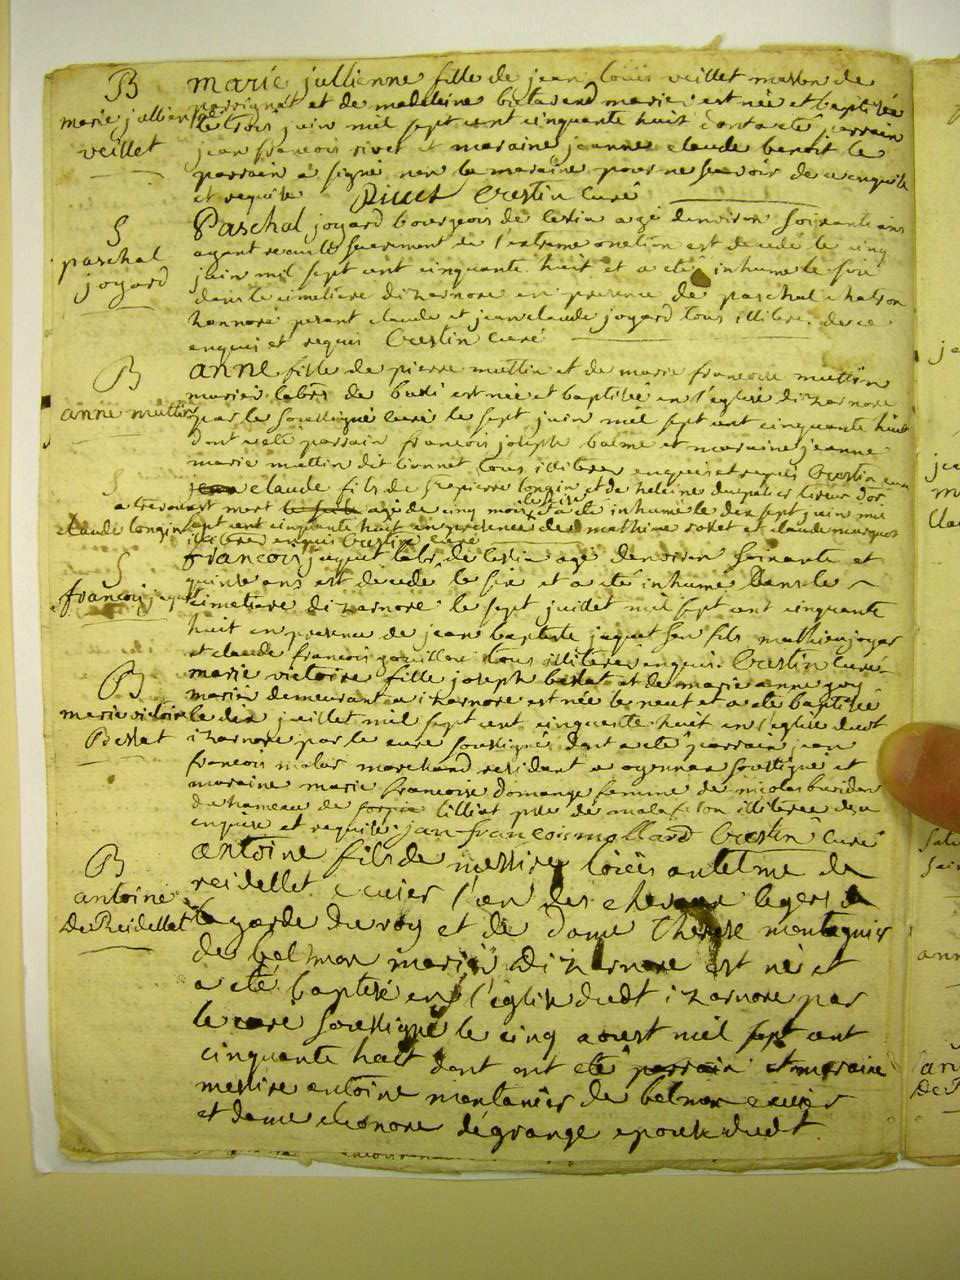 B
marie jullienne
veillet
marie jullienne fille de jean louis veillet masson de
perrignat et de madeleine mariés est née et baptisée
le trois juin mil sept cent cinquante huit dont a eté parrain
jean francois rivet et maraine jeanne claude benoit le
parrain a signé non la maraine pour ne scavoir de ce enquise
et requise Rivet Crestin curé
S
paschal
jogard
Paschal jogard bourgeois de lesia agé denviron soixante ans
ayant recu le sacrement de l'extreme onction est decedé le cinq
juin mil sept cent cinquante huit et a eté inhumé le six
dans le cimetiere dizarnore en presence de paschal chatson
honnoré perant claude et jean claude jogard tous illitere. de ce
enquis et requis Crestin curé
B
anne muttin
anne fille de pierre muttin et de marie francoise muttin
mariés labrs de est née et baptisée en l'eglise dizarnore
par le soussigné curé le sept juin mil sept cent cinquante huit
dont a eté parrain francois joseph balme et maraine jeanne
marie muttin dit bonnet tous illiteres enquis et requis Crestin curé
S
claude longin
claude fils de pierre longin et de heleine tireur d'or
a trevoux est mort agé de cinq mois et a eté inhumé le dix sept juin mil
sept cent cinquante huit en presence de mathieu et claude
illiteres enquis Crestin curé
S
francois jaquet
francois jaquet labr de lesia agé denviron soixante et
quinze ans est decedé le six et a eté inhumé dans le
cimetiere dizarnore le sept juillet mil sept cent cinquante
huit en presence de jean baptiste jaquet son fils mathieu jogar
et claude francois tous illiteres enquis. Crestin curé
B
marie victoire
Bessat
marie victoire fille joseph bessat et de marie anne goy
mariés demeurant a izarnore est née le neuf et a eté baptisée
le dix juillet mil sept cent cinquante huit en l'eglise dudt
izarnore par le curé soussigné dont a eté parrain jean
francois molar marchand residant a oyonnax soussigné et
maraine marie francoise domange femme de nicolas
du hameau de tilliat psse de illiteree de ce
enquise et requise. jan francois mollard Crestin curé
B
antoine
De Reidellet
antoine fils de messire loüis antelme de
reidellet ecuier l'un des chevaux legers de
la garde du roy et de dame therese montagnier
de belmon mariés dizarnore est né et
a eté baptisé en l'eglise dudt izarnore par
le curé soussigné le cinq aoust mil sept cent
cinquante huit dont ont eté parrain et maraine
messire antoine montanier de belmon ecuier
et dame eleonore dégrange epouse dudt